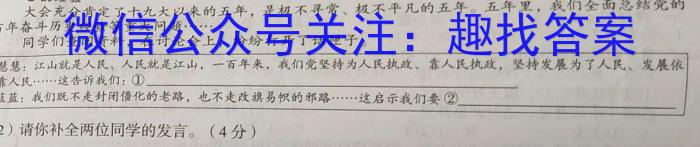 大会充分肯定了十九大以来的五年,是极不寻常、极不平凡的五年。五年里,我们全面总结党的
微信公众号关注:趣找答案
慧慧:江山就是人民,人民就是江山,一百年来,我们党坚持为人民执政、靠人民执政,坚持发展为了人民、发展依
靠人民……这告诉我们:①
蓝蓝:我们既不走封闭僵化的老路,也不走改旗易帜的邪路……这启示我们要②
2)请你补全两位同学的发言。(4分)